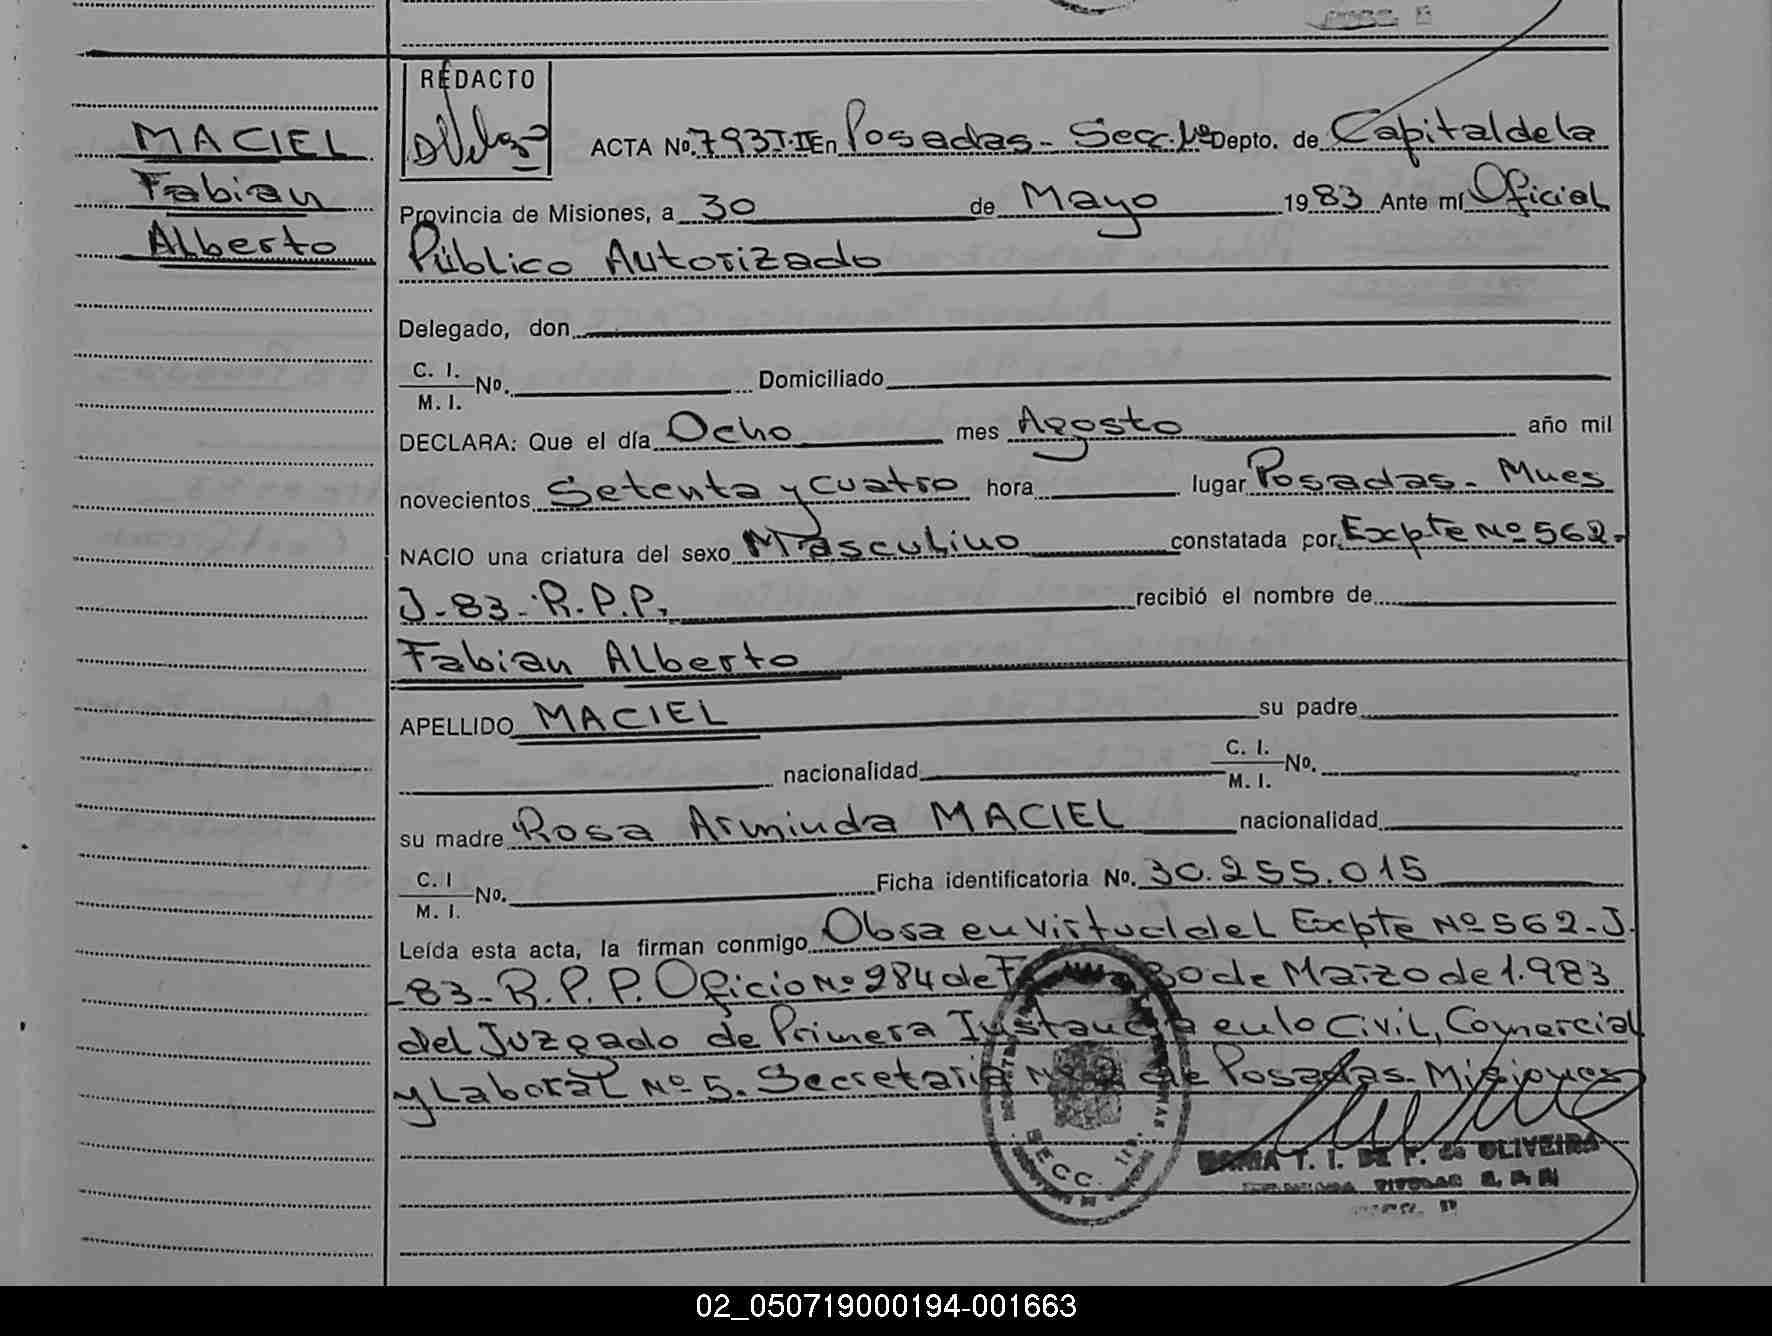 REDACTO
MACIEL
Fabian
Alberto
ACTA No. 793 T.II En Posadas - Secc. 1º Depto. de Capital de la
Provincia de Misiones, a 30 de Mayo 1983 Ante mí Oficial
Público Autorizado
Delegado, don
C. I.
M. I. No. Domiciliado
DECLARA: Que el día Ocho mes Agosto año mil
novecientos Setenta y cuatro hora lugar Posadas - Mnes
NACIO una criatura del sexo Masculino constatada por Expte Nº 562-
J-83-R.P.P. recibió el nombre de
Fabian Alberto
APELLIDO MACIEL su padre
nacionalidad C. I. M. I. No.
su madre Rosa Arminda MACIEL nacionalidad
C. I M. I. No. Ficha identificatoria No. 30.255.015
Leída esta acta, la firman conmigo Obsa en virtud del Expte Nº 562-J
-83-R.P.P. Oficio Nº 284 de 30 de Marzo de 1.983
del Juzgado de Primera Instancia en lo Civil, Comercial
y Laboral Nº 5. Secretaria de Posadas - Misiones
SECC. 1ra.
MARIA T. I. DE F. de OLIVEIRA
TITULAR
02_050719000194-001663